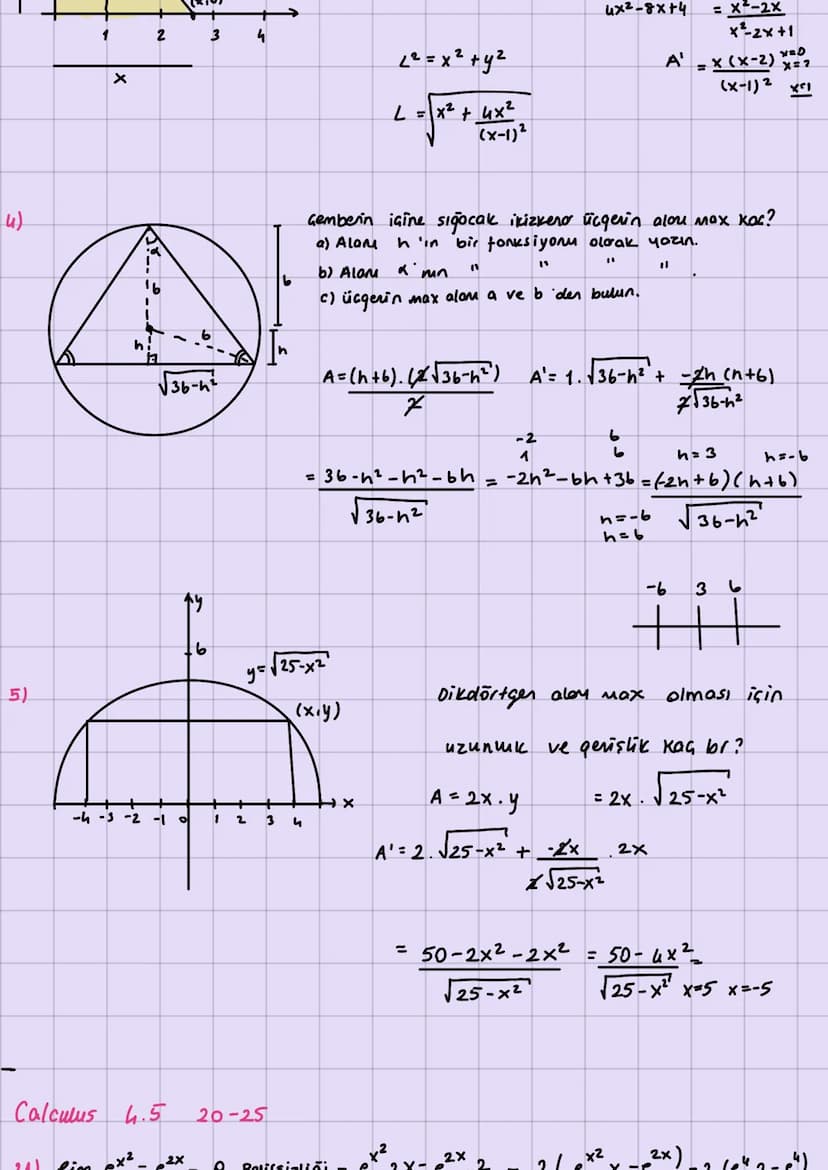 1 2 3 4
x
L² = x² + y²
L = √(x² + 4x²/(x-1)²)
4x²-8x+4 = x²-2x / x²-2x+1
A' = x(x-2) / (x-1)² x=0 x=2 x=1
4)
Çemberin içine sığacak ikizkenar üçgenin alanı max kaç?
a) Alanı h'ın bir fonksiyonu olarak yazın.
b) Alanı α'nın " " " " .
c) üçgenin max alanı a ve b'den bulun.
α
6
h 6
√36-h²
6
h
A=(h+6).(2√36-h²) / 2 A'= 1.√36-h² + -2h (h+6) / 2√36-h²
-2 6
1 6 h=3 h=-6
= 36-h²-h²-6h / √36-h² = -2h²-6h+36 = (-2h+6)(h+6) / √36-h²
h=-6
h=6
-6 3 6
y
6
y=√25-x²
5)
(x,y)
-4 -3 -2 -1 0 1 2 3 4 x
Dikdörtgen alanı max olması için
uzunluk ve genişlik kaç br?
A = 2x.y = 2x.√25-x²
A' = 2.√25-x² + -2x / 2√25-x² .2x
= 50-2x²-2x² / √25-x² = 50-4x² / √25-x² x=5 x=-5
Calculus 4.5 20-25